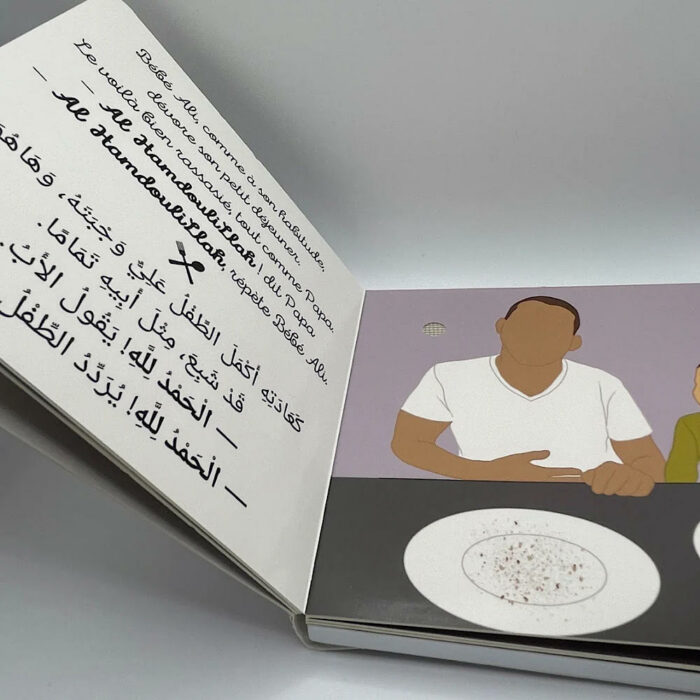 Bébé Ali, comme à son habitude,
dévore son petit déjeuner.
Le voilà bien rassasié, tout comme Papa.
— Al HamdouliLlah ! dit Papa
— Al HamdouliLlah, répète Bébé Ali.
كَعَادَتِهِ أَكْمَلَ الطِّفْلُ عَلِيٌّ وَجْبَتَهُ، وَهَا هُوَ
قَدْ شَبِعَ، مِثْلَ أَبِيهِ تَمَامًا.
— الْحَمْدُ لِلَّهِ! يَقُولُ الْأَبُ.
— الْحَمْدُ لِلَّهِ! يُرَدِّدُ الطِّفْلُ